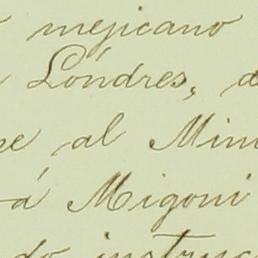 mejicano
Lóndres, d
e al Min
á Migoni
do instruc